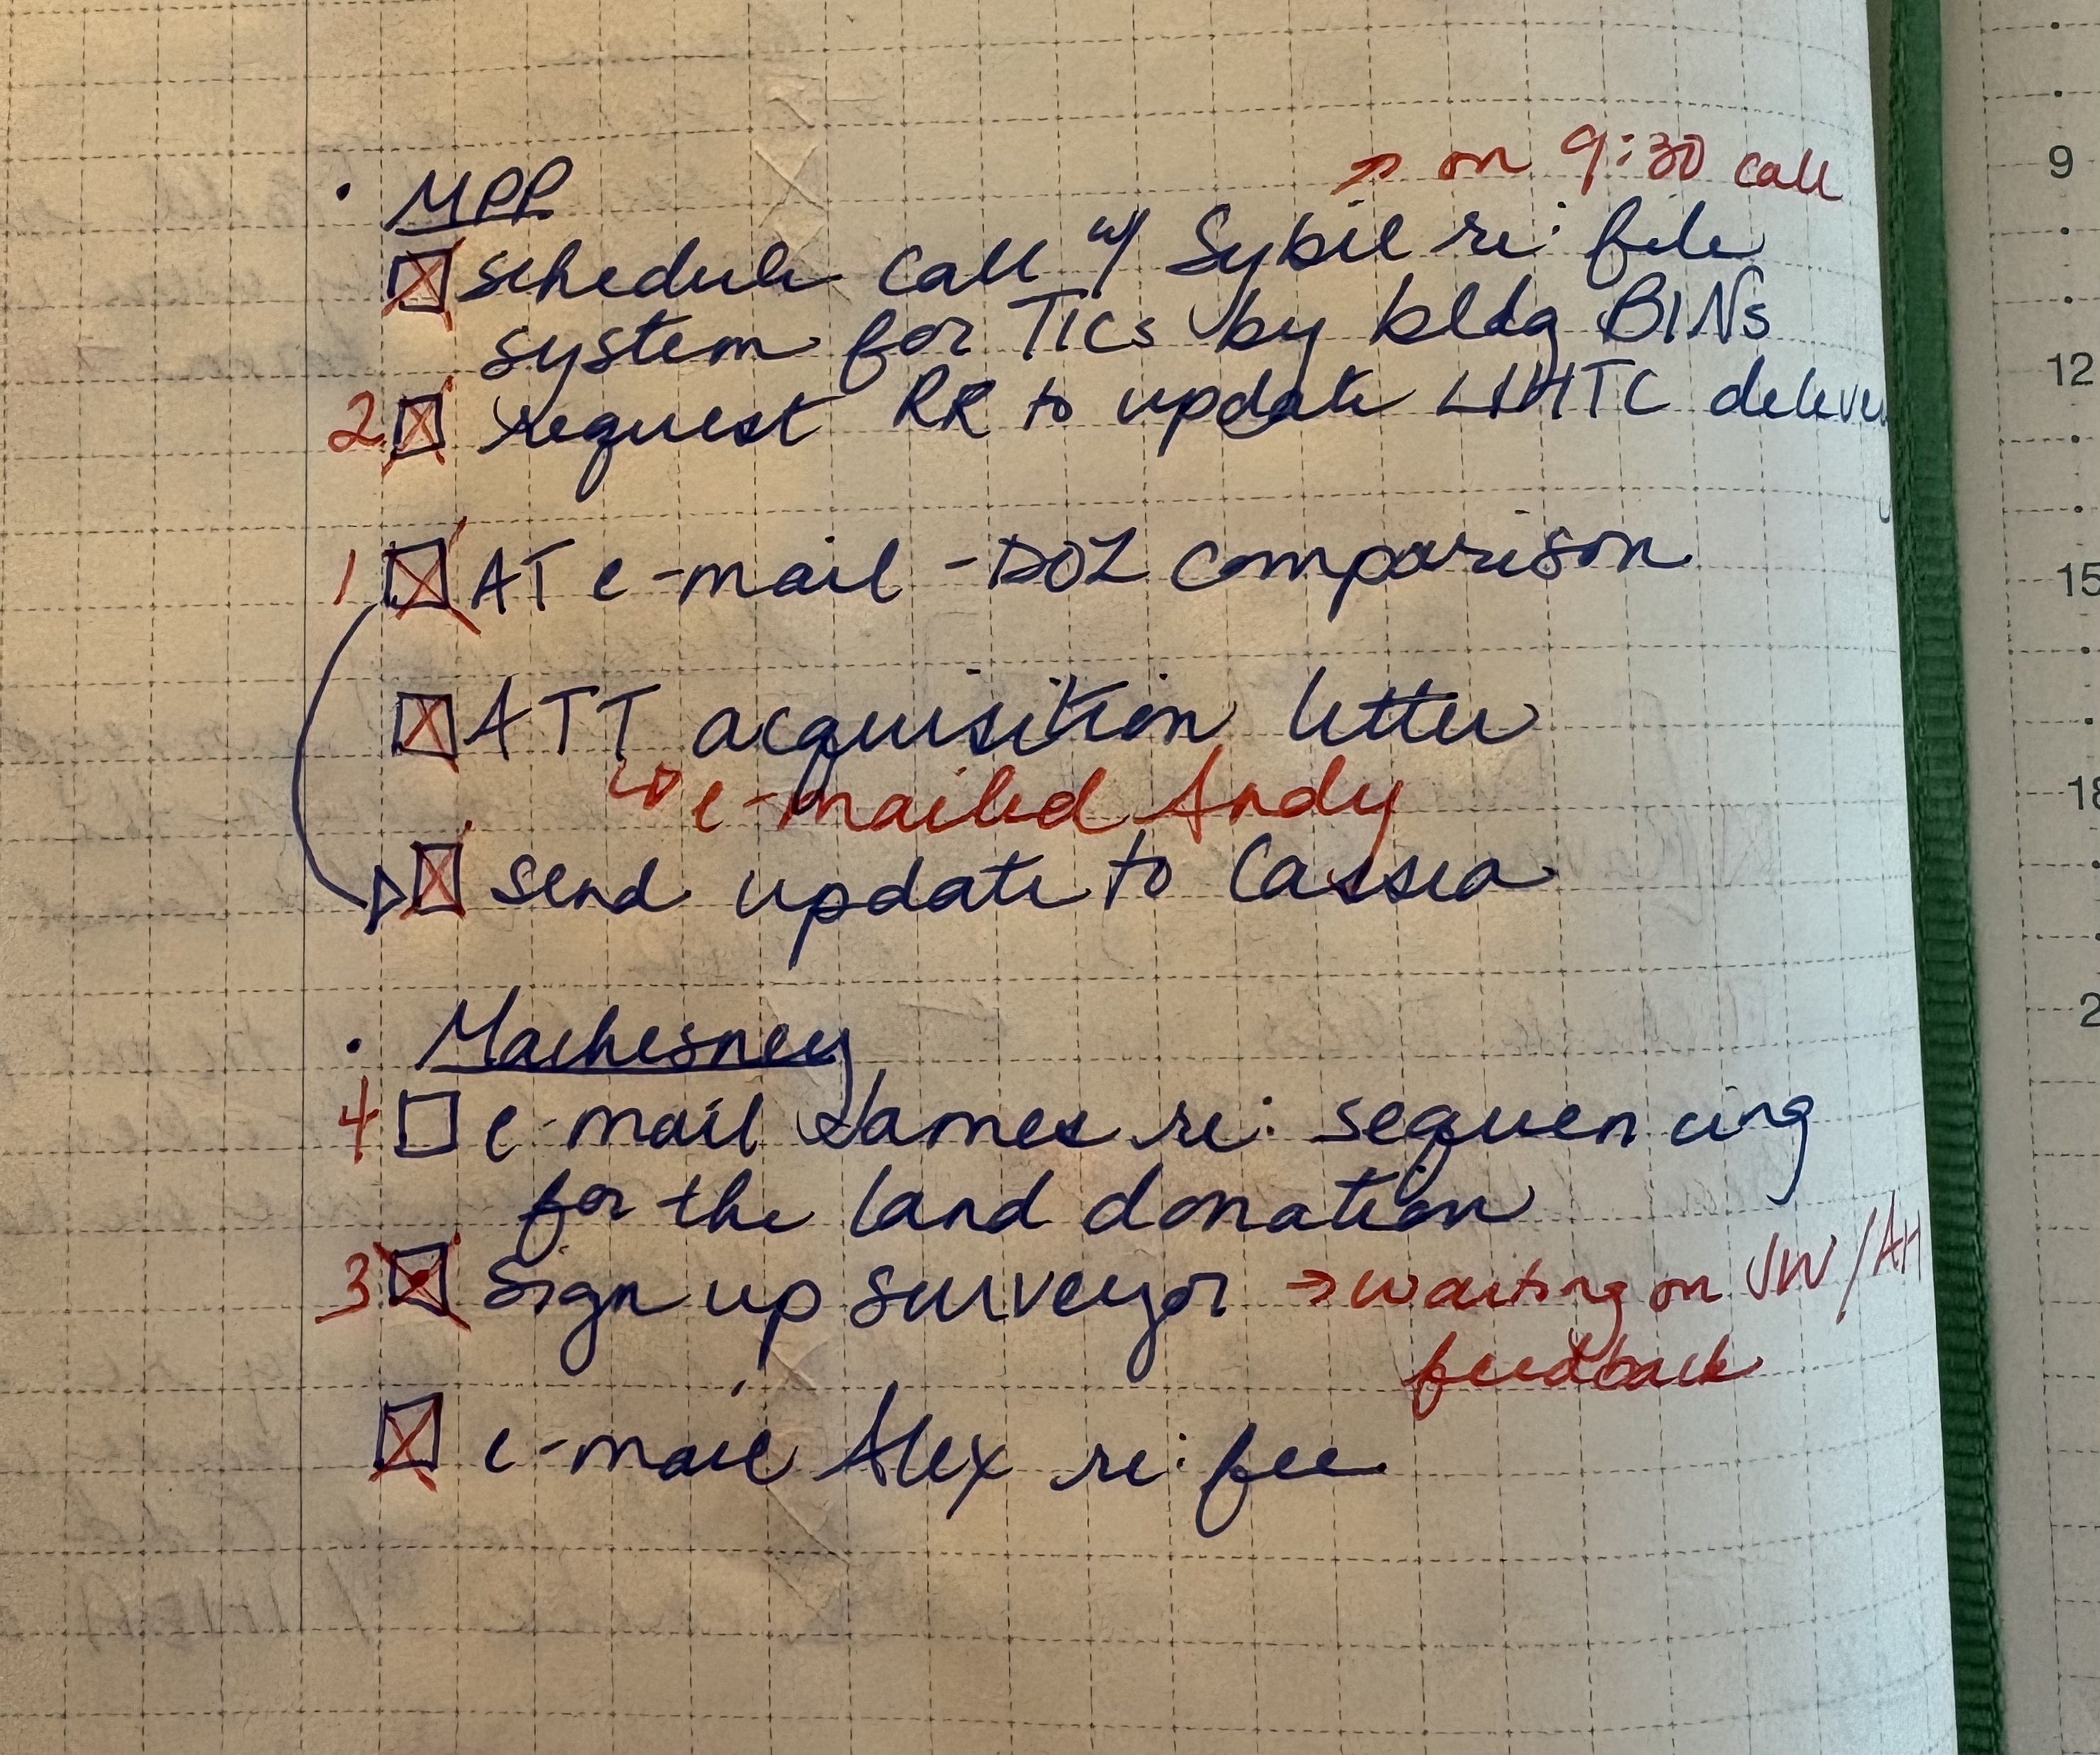 · MPP
→ on 9:30 call
schedule call w/ Sybil re: file
system for TICs by bldg BINs
2 request RR to update LIHTC delivery
1 AT e-mail - DOL comparison
ATT acquisition letter
↳ e-mailed Andy
send update to Cassia
· Machesney
4 e-mail James re: sequencing
for the land donation
3 sign up surveyor → waiting on JW/AH
feedback
e-mail Alex re: fee
9
12
15
18
2